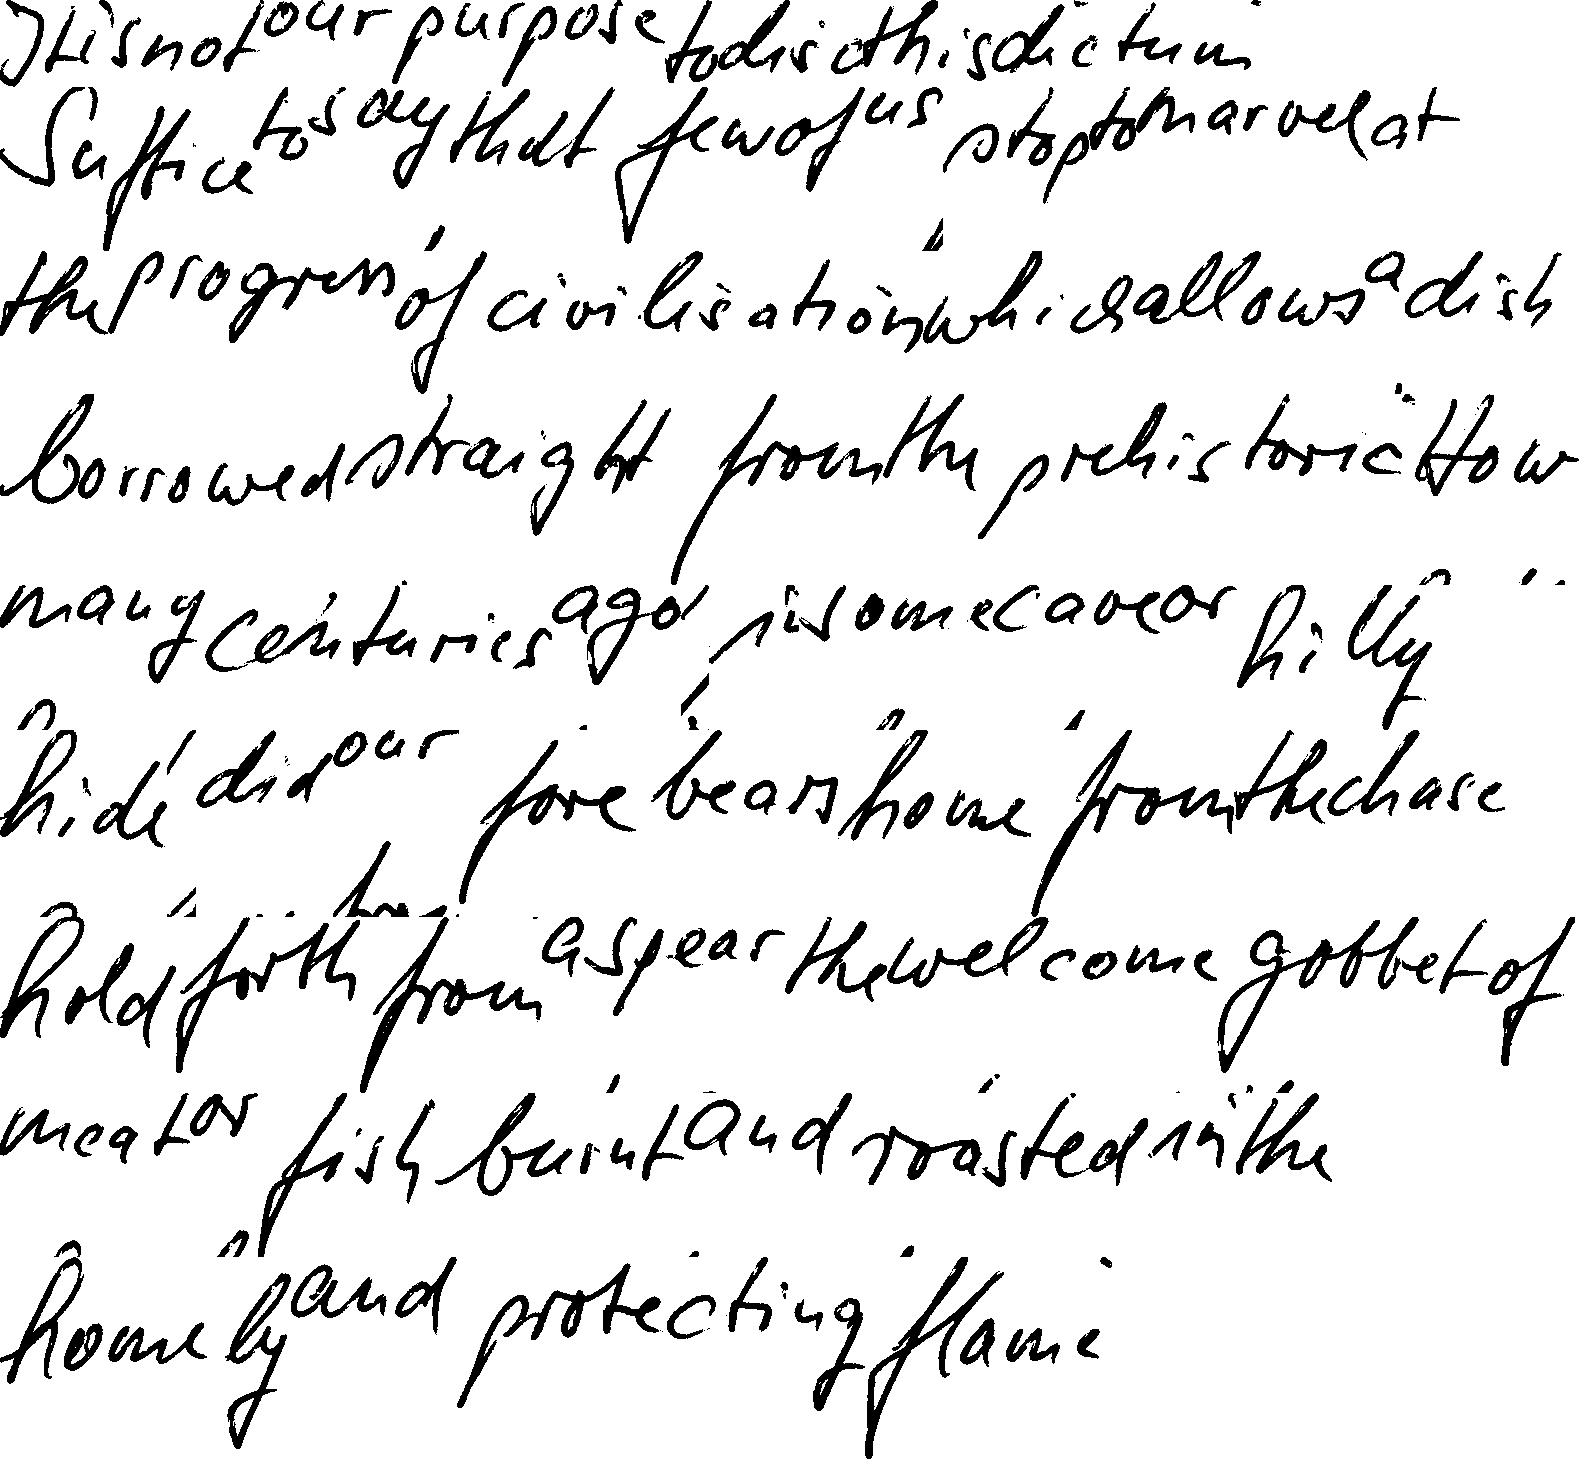 It is not our purpose to disc this dictum
Suffice to say that few of us stop to marvel at
the progress of civilisation which allows a dish
borrowed straight from the prehistoric How
many centuries ago in some cave or hilly
hide did our forebears home from the chase
hold forth from a spear the welcome gobbet of
meat or fish burnt and roasted in the
homely and protecting flame